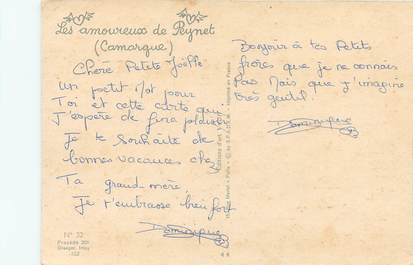 Les amoureux de Peynet
(Camargue)
Chère Petite Joëlle
Un petit Mot pour
Toi et cette carte qui
J'espère de fera plaisir
Je te Souhaite de
bonnes vacances chez
Ta grand mère,
Je t'embrasse bien fort
Dominique
Bonjour à tes Petits
frères que je ne connais
Pas Mais que J'imagine
très gentil!
Dominique
N° 32
Procédé 301
Draeger, Imp.
102